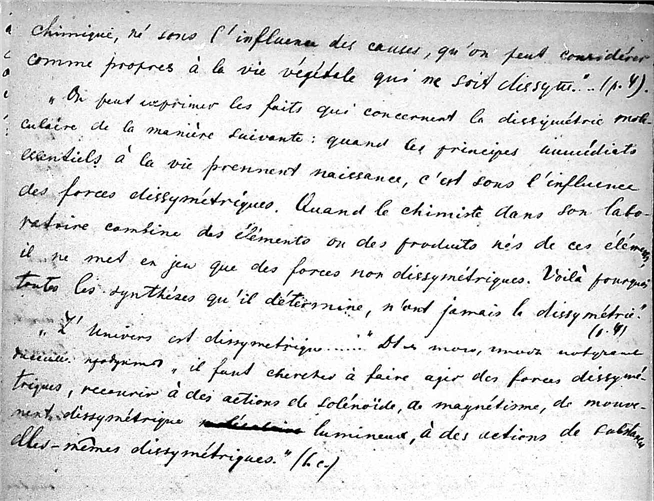 chimique, né sous l'influence des causes, qu'on peut considérer
comme propres à la vie végétale qui ne soit dissym."... (p. 4).
„On peut exprimer les faits qui concernent la dissymétrie molé-
culaire de la manière suivante: quand les principes immédiats
essentiels à la vie prennent naissance, c'est sous l'influence
des forces dissymétriques. Quand le chimiste dans son labo-
ratoire combine des éléments ou des produits nés de ces éléments,
il ne met en jeu que des forces non dissymétriques. Voilà pourquoi
toutes les synthèses qu'il détermine, n'ont jamais la dissymétrie."
(p. 4)
„L'Univers est dissymetrique......" Для того, чтобы получить
такие продукты „il faut chercher à faire agir des forces dissymé-
triques, recourir à des actions de solénoïde, de magnétisme, de mouve-
ment dissymétrique lumineux, à des actions de substances
elles-mêmes dissymétriques." (l.c.)